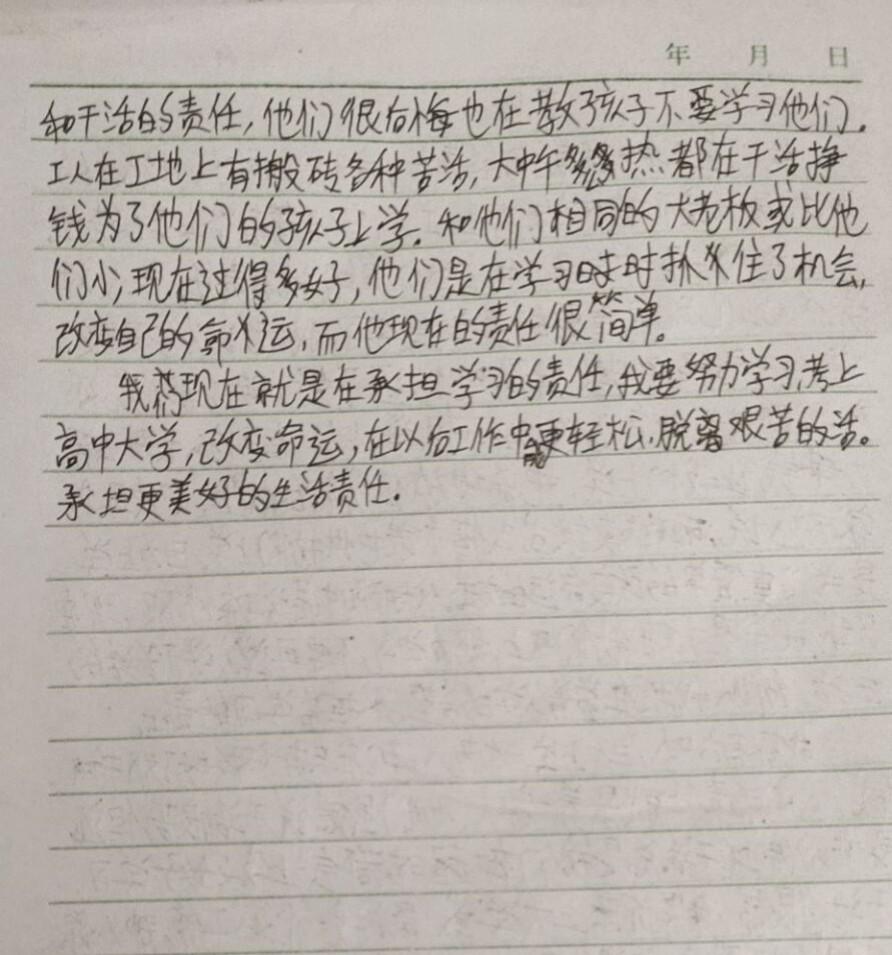 年 月 日
和干活的责任,他们很后悔也在教孩子不要学习他们.
工人在工地上有搬砖各种苦活,大中午多热都在干活挣
钱为了他们的孩子上学.和他们相同的大老板或比他
们小,现在过得多好,他们是在学习时时抓住了机会,
改变自己的命运,而他现在的责任很简单。
我现在就是在承担学习的责任,我要努力学习,考上
高中大学,改变命运,在以后工作中更轻松.脱离艰苦的活。
承担更美好的生活责任.